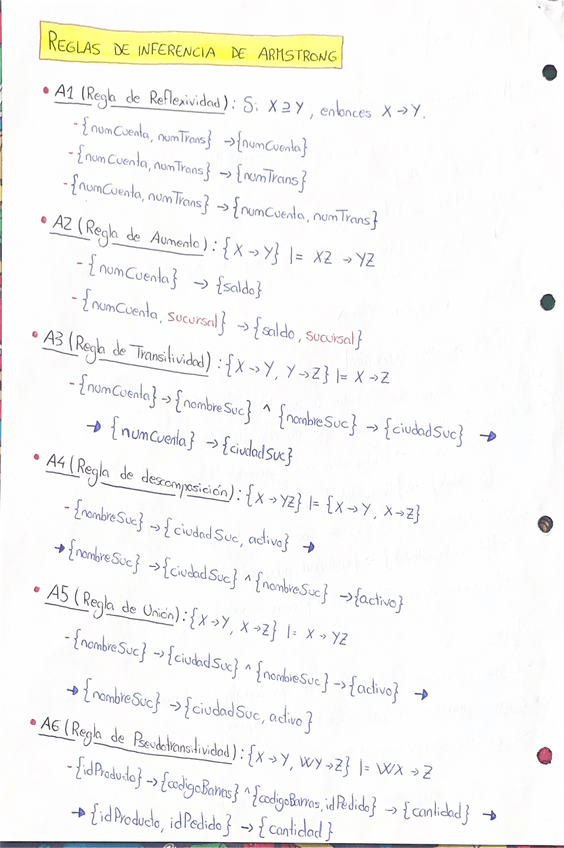 REGLAS DE INFERENCIA DE ARMSTRONG
• A1 (Regla de Reflexividad): Si X ⊇ Y, entonces X → Y.
- {numCuenta, numTrans} → {numCuenta}
- {numCuenta, numTrans} → {numTrans}
- {numCuenta, numTrans} → {numCuenta, numTrans}
• A2 (Regla de Aumento): {X → Y} |= XZ → YZ
- {numCuenta} → {saldo}
- {numCuenta, sucursal} → {saldo, sucursal}
• A3 (Regla de Transitividad): {X → Y, Y → Z} |= X → Z
- {numCuenta} → {nombreSuc} ^ {nombreSuc} → {ciudadSuc} →
→ {numCuenta} → {ciudadSuc}
• A4 (Regla de descomposición): {X → YZ} |= {X → Y, X → Z}
- {nombreSuc} → {ciudadSuc, activo} →
→ {nombreSuc} → {ciudadSuc} ^ {nombreSuc} → {activo}
• A5 (Regla de Unión): {X → Y, X → Z} |= X → YZ
- {nombreSuc} → {ciudadSuc} ^ {nombreSuc} → {activo} →
→ {nombreSuc} → {ciudadSuc, activo}
• A6 (Regla de Pseudotransitividad): {X → Y, WY → Z} |= WX → Z
- {idProducto} → {codigoBarras} ^ {codigoBarras, idPedido} → {cantidad} →
→ {idProducto, idPedido} → {cantidad}